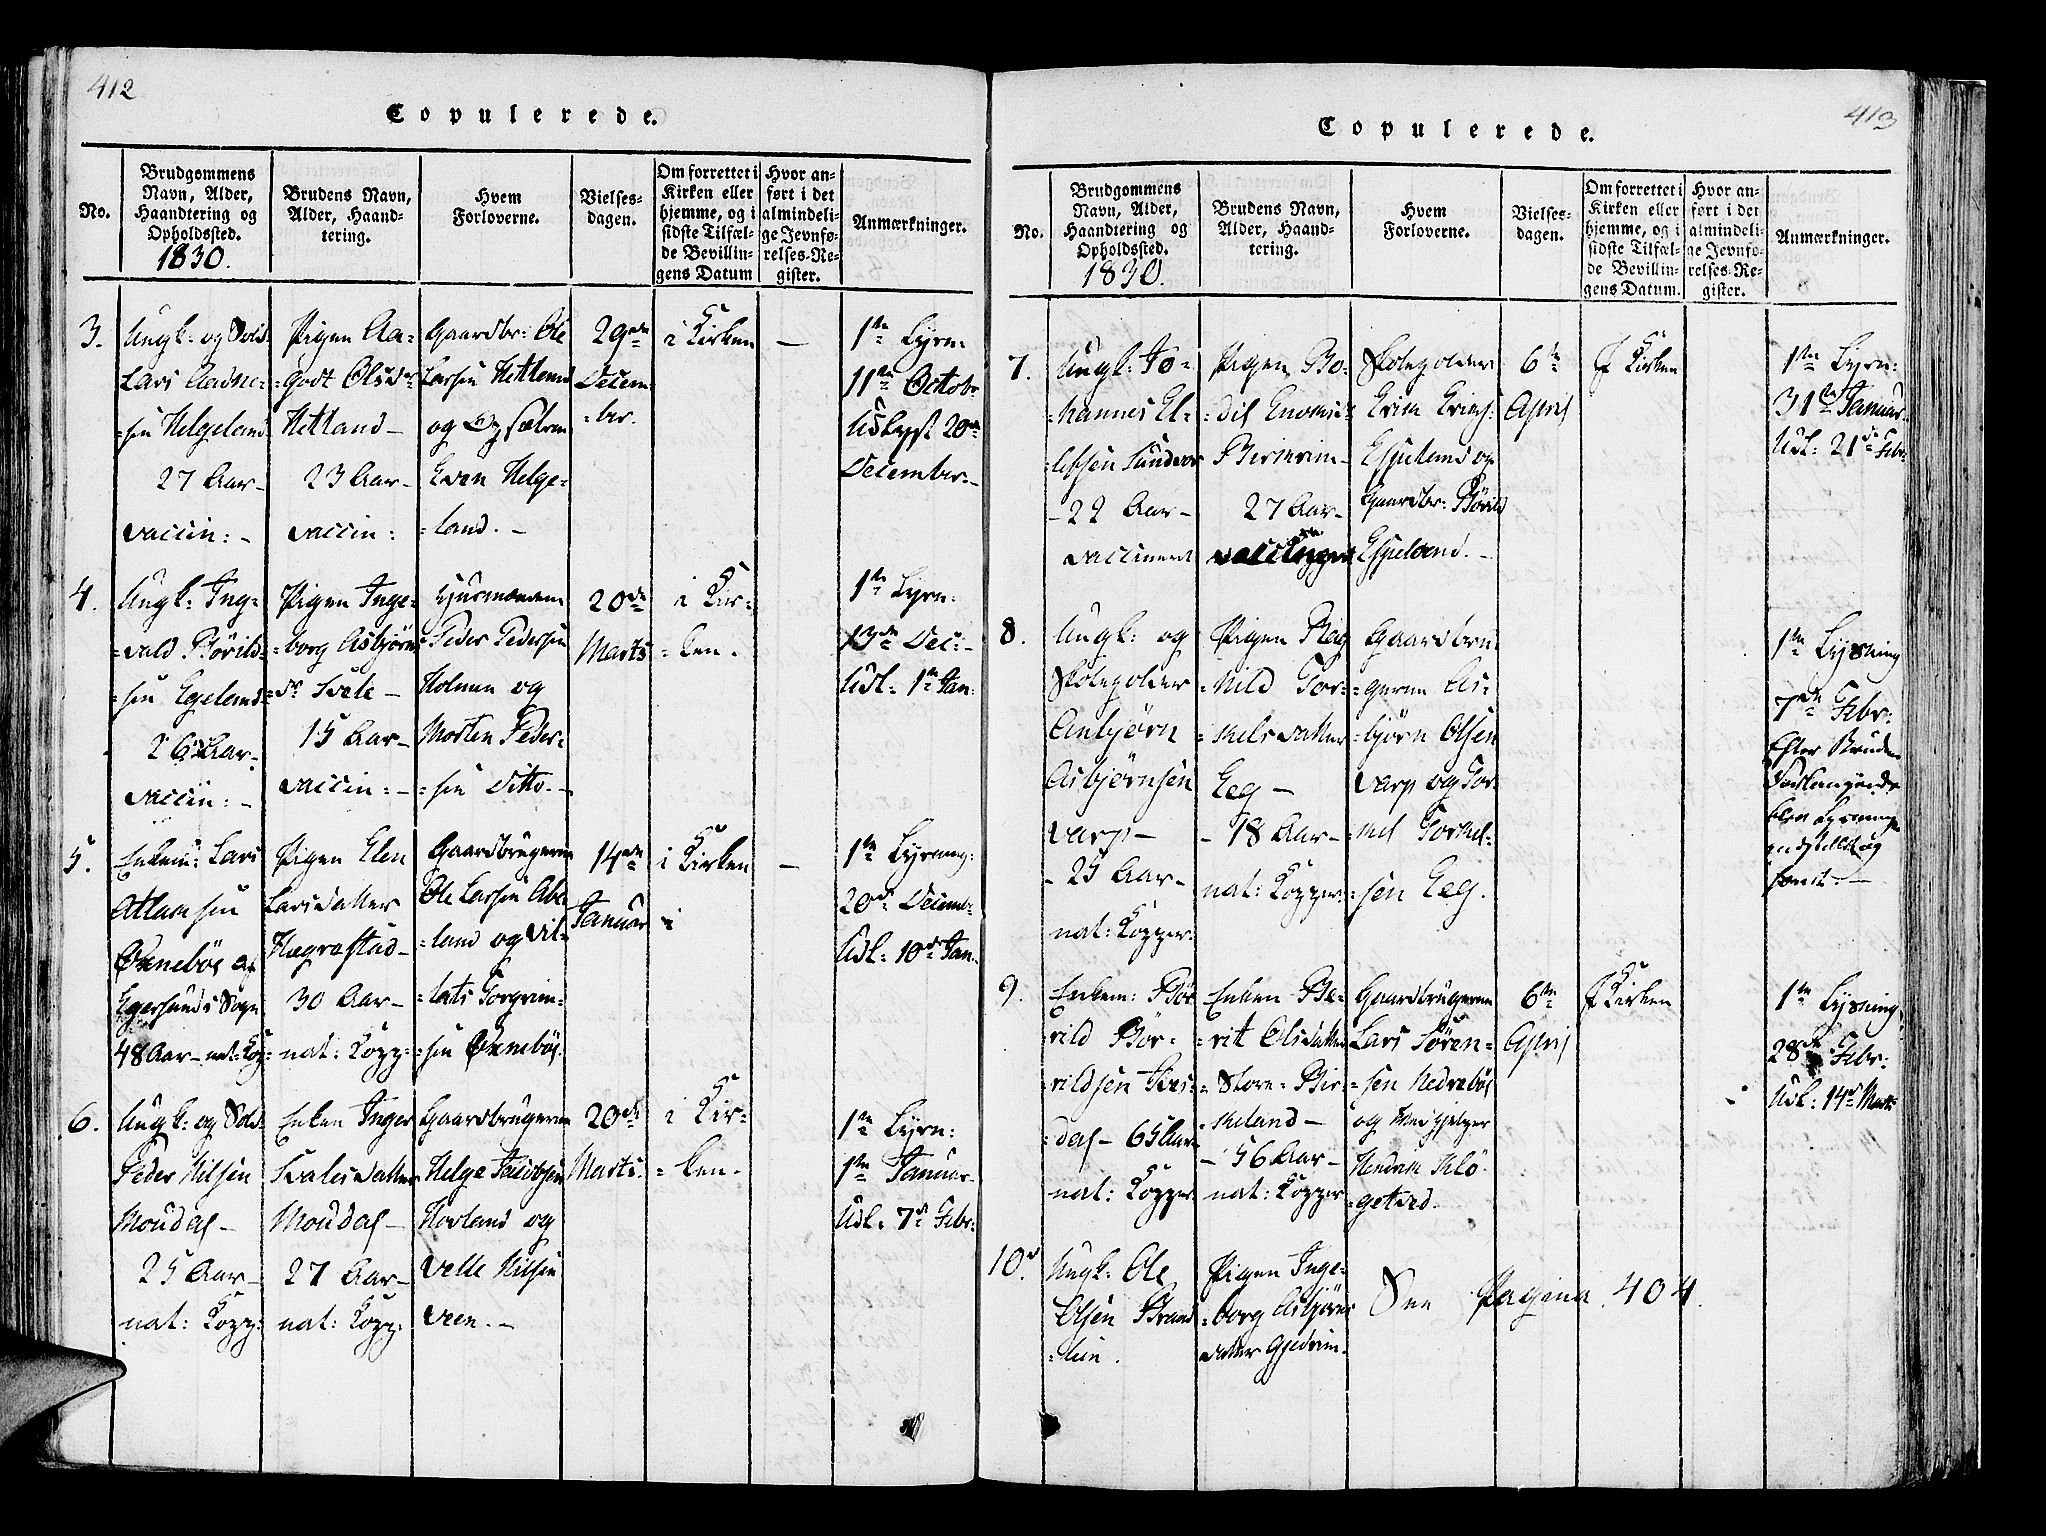 412
Copulerede.
No.
Brudgommens
Navn, Alder,
Haandtering og
Opholdssted.
1830.
Brudens Navn,
Alder, Haand-
tering.
Hvem
Forloverne.
Vielses-
dagen.
Om forrettet i
Kirken eller
hjemme, og i
sidste Tilfæl-
de Bevillin-
gens Datum
Hvor an-
ført i det
almindeli-
ge Jevnfø-
relses-Re-
gister.
Anmærkninger.
3.
Ungk: og Sold:
Lars Aadne-
=sen Helgeland
27 Aar-
vaccin: -
Pigen Aa-
=godt Olsd=
Hetland-
23 Aar-
vaccin:
Gaardbr: Ole
Larsen Hetland
og
Even Helge-
=land. -
29de
Decem
=ber.
i Kirken
-
1te Lysn:
11te Octob:
Udlyst 20de
December.-
4.
Ungk: Ing-
=vald Børild-
=sen Egeland
26 Aar-
vaccin: -
Pigen Inge-
=borg Asbjørns
=dr Svele -
15 Aar-
vaccin: -
Huusmændene
Peder Pedersen
Holmen og
Morten Peder-
=sen ditto. -
20de
Marts
i Kir-
=ken.
1te Lysn:
13de Dec: -
Udl: 1te Jan:
5.
Enkem: Lars
Atlaksen
Ørnebøe af
Egersunds Sogn
48 Aar- nat: Kop=
Pigen Elen
Larsdatter
Hægrestad-
30 Aar-
nat: Kopp:
Gaardbrugerne
Ole Larsen Abe-
=land og Vil-
=lats Torgrim-
=sen Ørnebøe.
14de
Januar
i Kirken
i
-
1te Lysning:
20de Decemb:
Udl: 10de Jan.
6.
Ungk: og Sold:
Peder Nilsen
Moudal -
25 Aar-
nat: Kopp:
Enken Inger
Tvalesdatter
Moudal -
27 Aar-
nat: Kopp:
Gaardbrugerne
Helge Jacobsen
Hovland og
Velle Nilsen
Veen. -
20de
Marts.
i Kir-
=ken.
1te Lysn:
1te Januar-
Udl: 7de Febr:
413
Copulerede.
No.
Brudgommens
Navn, Alder,
Haandtering og
Opholdssted.
1830.
Brudens Navn,
Alder, Haand-
tering.
Hvem
Forloverne.
Vielses-
dagen.
Om forrettet i
Kirken eller
hjemme, og i
sidste Tilfæl-
de Bevillin-
gens Datum.
Hvor an-
ført i det
almindeli-
ge Jevnfø-
relses-Re-
gister.
Anmærkninger.
7.
Ungk: Jo-
=hannes El-
=lefsen Sundvor
-22 Aar-
vaccineret
Pigen Bo-
=dil Enoksd
Birkrim-
27 Aar-
Skoleholder
Erik Erichs:
Espeland og
Gaardbr: Børild
Espeland. -
6te
April
I Kirken
1te Lysn:
31te Januar.
Udl: 21de Febr.
8.
Ungk: og
Skoleholder
Anbjørn
Asbjørnsen
Varp-
-25 Aar-
nat: Kopper:
Pigen Rag
=nild Tor-
=kelsdatter
Eeg -
-18 Aar-
nat: Kopper:
Gaardbru
=gerne As-
=bjørn Olsen
Varp og Tor-
=kel Torkel-
=sen Eeg.
1te Lysning
7de Febr:
Efter Bruden
Forlangende
blev Lysningen
indstillet og

9.
Enkem: Bø
rild Bør-
rildsen
=dal- 65 Aar
nat: Kopper
Enken Be-
=rit Olsdatter
Store-Bir-
=keland -
-56 Aar-
nat: Kopper
Gaardbrugerne
Lars Søren-
=sen Nedrebøe
og Medhjelper
Hendrik Klø-
=getved.
6te
April
I Kirken
1te Lysning
28de Febr:
Udl: 14de Marts
10de
Ungk: Ole
Olsen Brand
=lien.
Pigen Inge-
=borg Asbjørns
datter Gjedrem.
See Pagina 404.